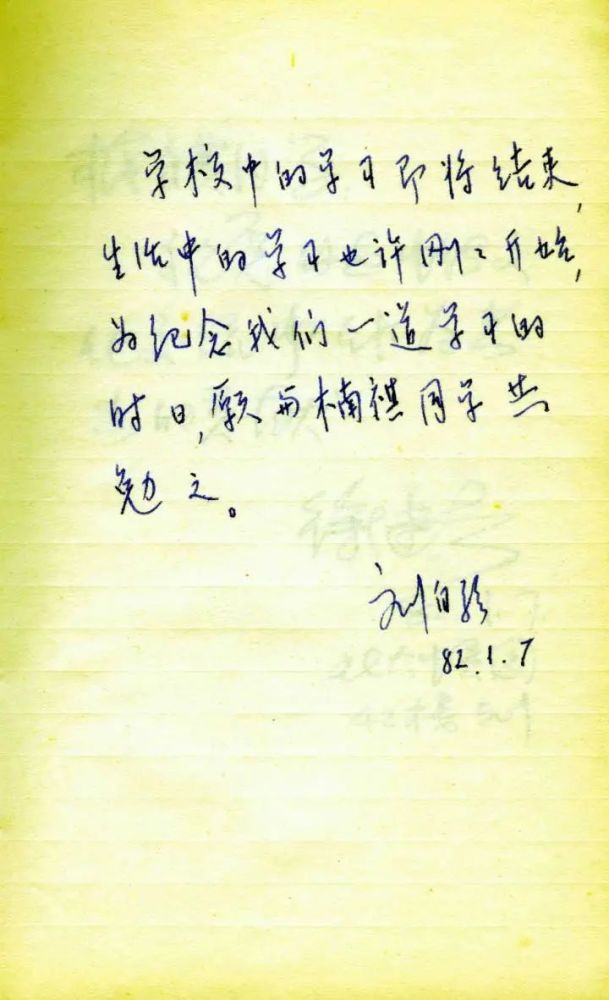 学校中的学习即将结束，
生活中的学习也许刚々开始，
为纪念我们一道学习的
时日，愿与楠祺同学共
勉之。
刘白
82.1.7